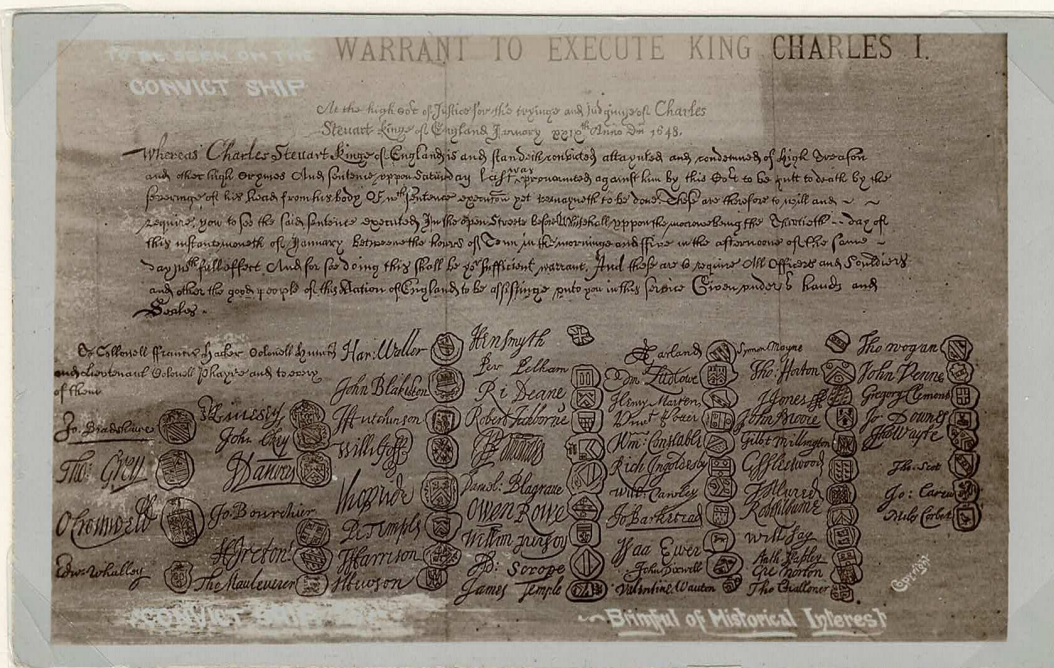 TO BE SEEN ON THE
CONVICT SHIP
WARRANT TO EXECUTE KING CHARLES I.
At the high Cort of Justice for the tryinge and iudginge of Charles
Steuart Kinge of England January xxixth Anno Dni 1648.
Whereas Charles Steuart Kinge of England is and standeth convicted attaynted and condemned of high Treason
and other high Crymes And sentence uppon Saturday last was pronounced against him by this Cort to be putt to death by the
severinge of his head from his body Of wch sentence execution yet remayneth to be done These are therefore to will and
require you to see the said sentence executed In the open Streete before Whitehall uppon the morrowe being the Thirtieth day of
this instante moneth of January betweene the houres of Tenn in the morninge and five in the afternoone of the same
day wth full effect And for soe doing this shall be yor sufficient warrant And these are to require All Officers and Souldiers
and other the good people of this Nation of England to be assistinge unto you in this service Given under our hands and
Seales
To Collonell Ffrancis Hacker Colonell Huncks
and Lieutenant Colonell Phayre and to every
of them
Jo. Bradshawe
Tho: Grey
O Cromwell
Edw. Whalley
John Okey
J Danvers
Jo. Bourchier
H Ireton
Tho Mauleverer
Har: Waller
John Blakiston
J Hutchinson
Willi Goff
Pe Temple
T Harrison
J Hewson
Hen Smyth
Per Pelham
Ri Deane
Robert Tichborne
Daniel Blagrave
Owen Rowe
Ad: Scrope
James Temple
A Garland
Edm Ludlowe
Henry Marten
Vinct Potter
Wm Constable
Rich Ingoldesby
Will Cawley
Jo Barkstead
Isaa Ewer
John Dixwell
Valentine Wauton
Symon Mayne
Tho Horton
J Jones
John Moore
Gilbt Millington
G Fleetwood
J Alured
Robt Lilburne
Will Say
Anth Stapley
Gre Norton
Tho Challoner
Tho Wogan
John Venn
Gregory Clement
Jo Downes
Tho Wayte
Tho Scot
Jo: Carew
Miles Corbet
Copyright
CONVICT SHIP
Brimful of Historical Interest